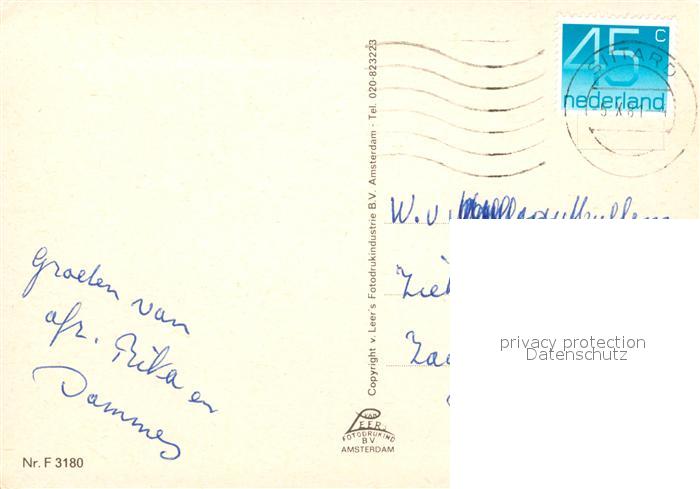 45 c
nederland
SITTARD
-5 X 81 - 4
W. v.
Groeten van
afz. Rika en
Dammes
Copyright v. Leer's Fotodrukindustrie B.V. Amsterdam - Tel. 020-823223
privacy protection
Datenschutz
VAN
LEER
FOTODRUKIND
BV
AMSTERDAM
Nr. F 3180